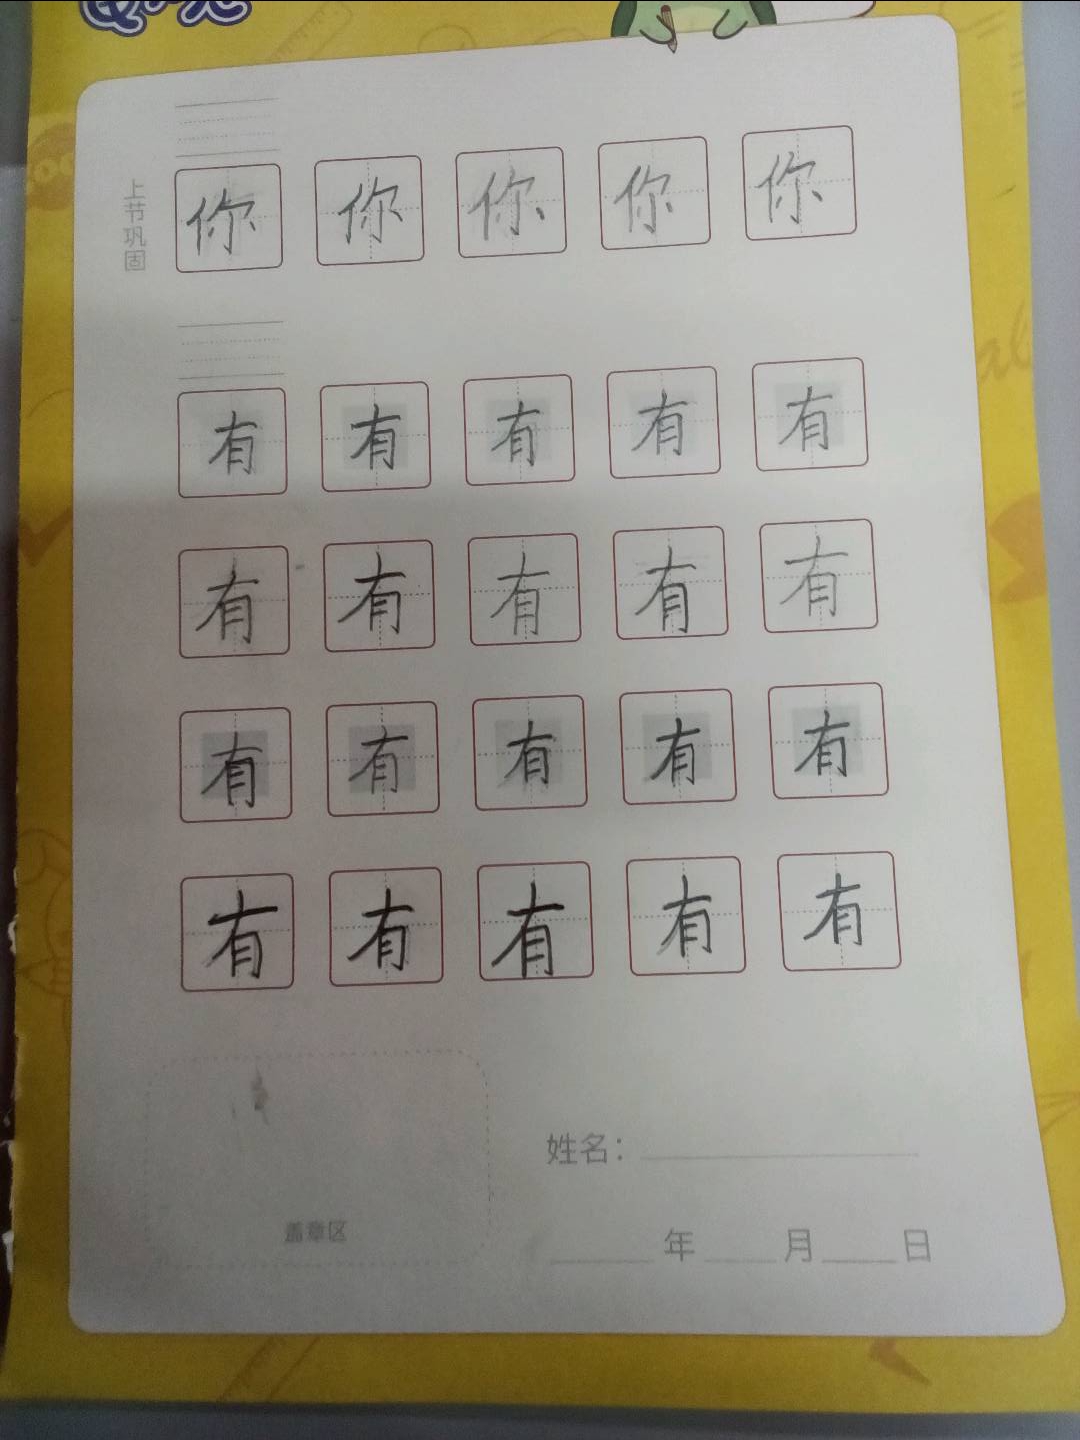 上节巩固
你 你 你 你 你
有 有 有 有 有
有 有 有 有 有
有 有 有 有 有
有 有 有 有 有
姓名：
盖章区
年 月 日